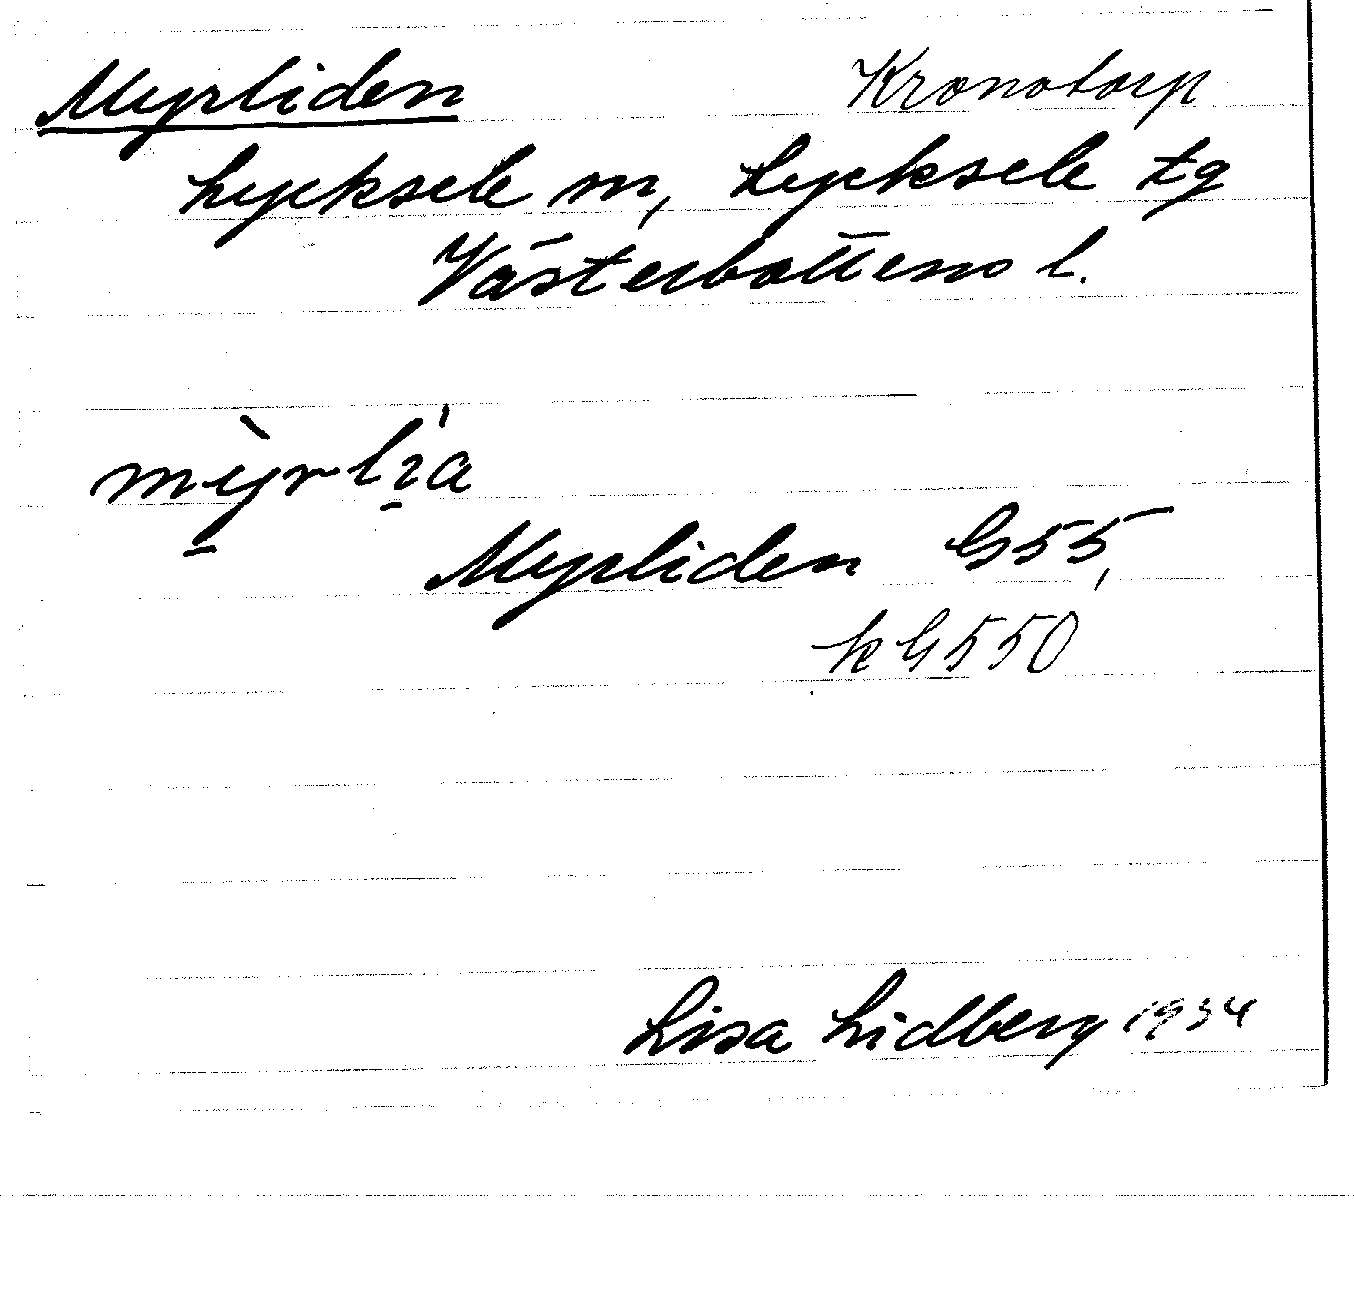 Myrliden Kronotorp
Lycksele sn, Lycksele tg
Västerbottens l.
mỳrlía
Myrliden G55,
kG550
Lisa Lidberg 1934